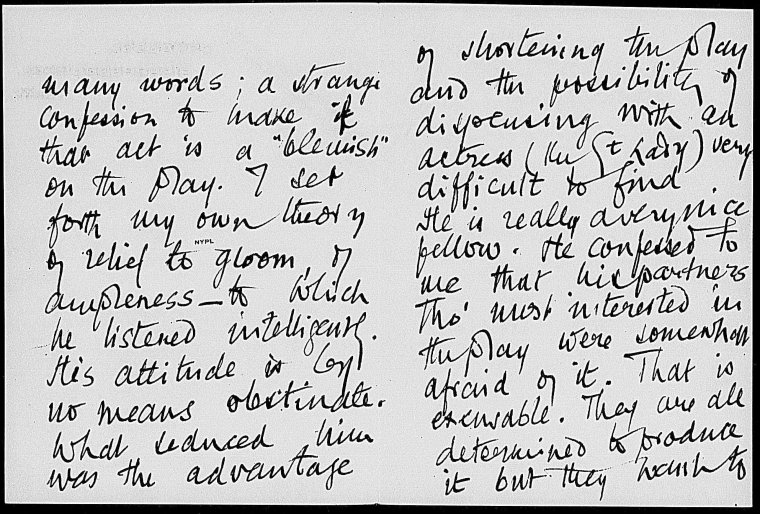 many words; a strange
confession to make if
that act is a "blemish"
on the play. I set
forth my own theory
of relief to gloom, of
ampleness — to which
he listened intelligently.
His attitude is by
no means obstinate.
What seduced him
was the advantage
of shortening the play
and the possibility of
dispensing with an
actress (the Gt Lady) very
difficult to find
He is really a very nice
fellow. He confessed to
me that his partners
tho' most interested in
the play were somewhat
afraid of it. That is
excusable. They are all
determined to produce
it but they want to
NYPL